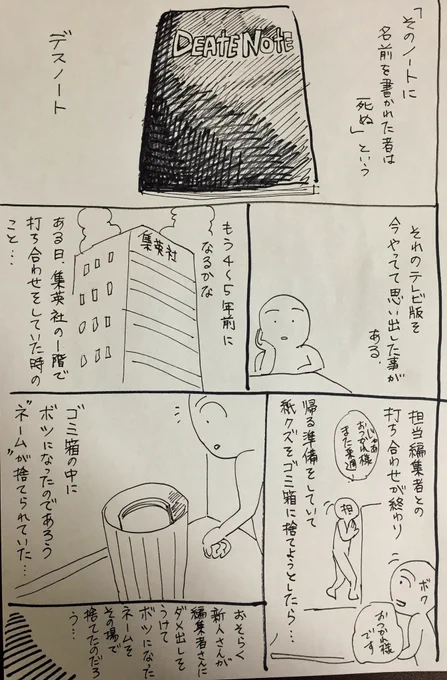 「そのノートに
名前を書かれた者は
死ぬ」という
DEATE NOTE
デスノート
それのテレビ版を
今やってて思い出した事が
ある。
もう4〜5年前に
なるかな
ある日、集英社の一階で
打ち合わせをしていた時の
こと…
集英社
担当編集者との
打ち合わせが終わり
じゃあ
おつかれ様
また来週!
担
帰る準備をしていて
紙クズをゴミ箱に捨てようとしたら…
ボク
おつかれ様
です
ゴミ箱の中に
ボツになったのであろう
“ネーム”が捨てられていた…
おそらく
新人さんが
編集者さんに
ダメ出しを
うけて
ボツになった
ネームを
その場で
捨てたのだろ
う…